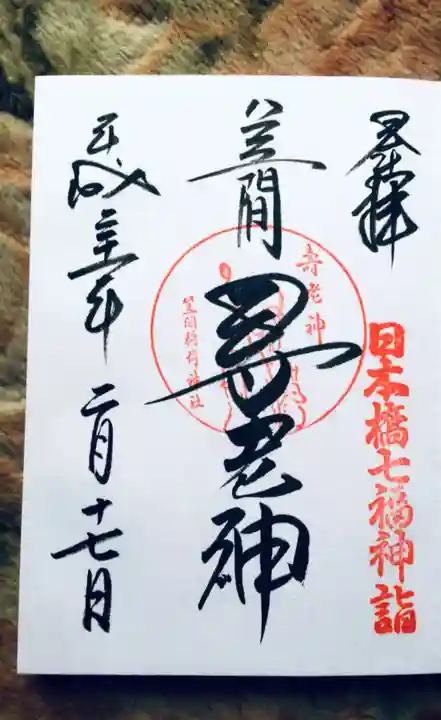 奉拝
日本橋七福神詣
笠間
寿老神
寿老神
笠間稲荷神社
平成三十一年 二月十七日